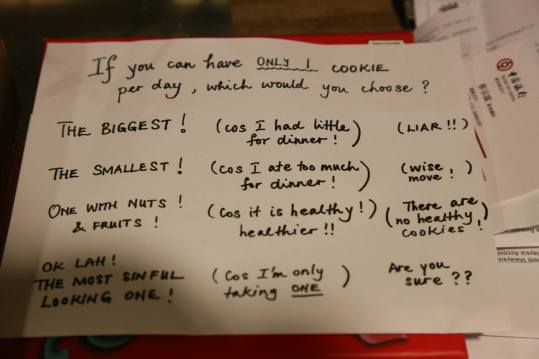 If you can have ONLY 1 COOKIE
per day, which would you choose?
THE BIGGEST! (cos I had little for dinner!) (LIAR!!)
THE SMALLEST! (cos I ate too much for dinner!) (wise move!)
ONE WITH NUTS! & FRUITS! (cos it is healthy! healthier!!) (There are no healthy cookies!)
OK LAH!
THE MOST SINFUL
LOOKING ONE! (cos I'm only taking ONE) Are you sure??
中国银行